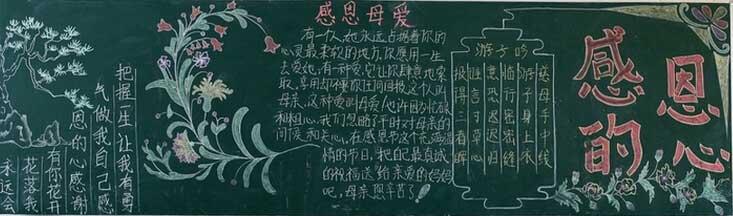 把握一生让我有勇
气做我自己感
恩的心感谢
有你花开
花落我
永远会
感恩母爱
有一个人,她永远占据着你的
心灵最柔软的地方,你愿用一生
去爱她,有一种爱,它让你肆意地索
取、享用却不要你任何回报,这个人叫
母亲,这种爱叫母爱!也许因为忙碌
和粗心,我们忽略了平时对母亲的
问候和关心,在感恩节这个充满温
情的节日,把你最真诚
的祝福送给亲爱的妈妈
吧,母亲您辛苦了!
游子吟
慈母手中线
游子身上衣
临行密密缝
意恐迟迟归
谁言寸草心
报得三春晖
感恩
的心